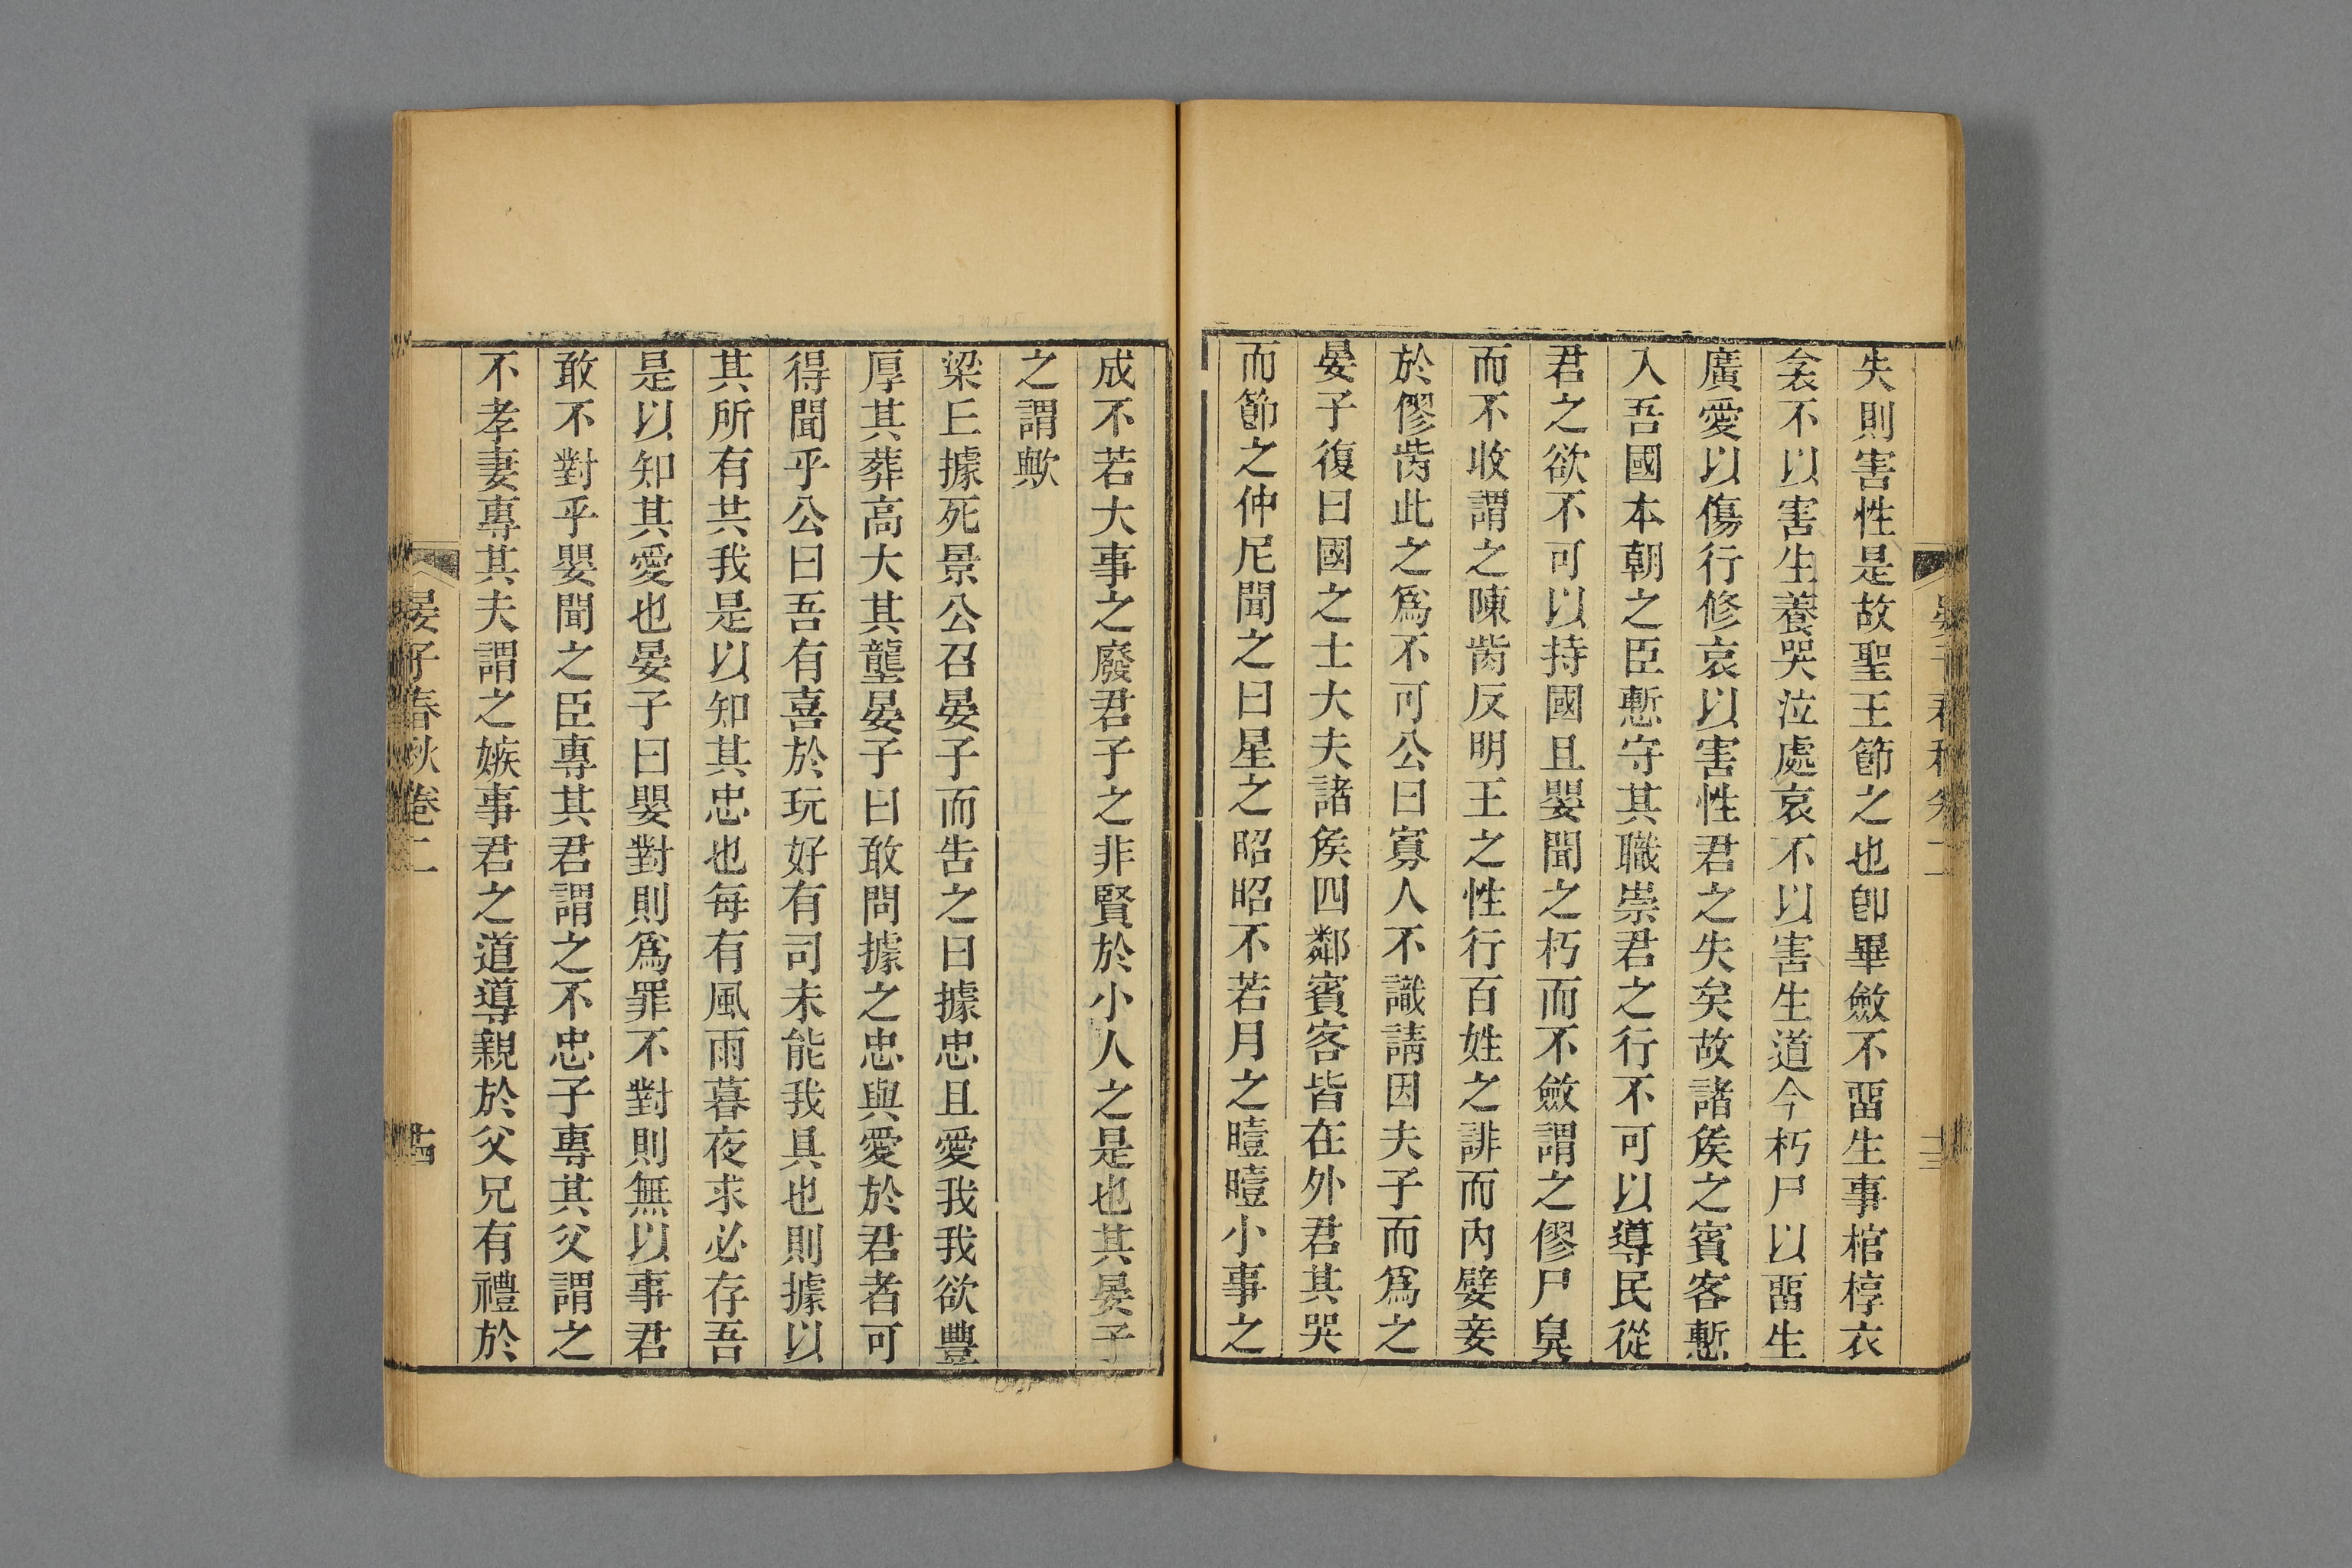 晏子春秋卷二
十三
失則害性是故聖王節之也卽畢斂不畱生事棺椁衣
衾不以害生養哭泣處哀不以害生道今朽尸以畱生
廣愛以傷行修哀以害性君之失矣故諸矦之賓客慙
入吾國本朝之臣慙守其職崇君之行不可以導民從
君之欲不可以持國且嬰聞之朽而不斂謂之僇尸臭
而不收謂之陳胔反明王之性行百姓之誹而內嬖妾
於僇胔此之爲不可公曰寡人不識請因夫子而爲之
晏子復曰國之士大夫諸矦四鄰賓客皆在外君其哭
而節之仲尼聞之曰星之昭昭不若月之曀曀小事之
成不若大事之廢君子之非賢於小人之是也其晏子
之謂歟
梁丘據死景公召晏子而告之曰據忠且愛我我欲豐
厚其葬高大其壟晏子曰敢問據之忠與愛於君者可
得聞乎公曰吾有喜於玩好有司未能我具也則據以
其所有共我是以知其忠也每有風雨暮夜求必存吾
是以知其愛也晏子曰嬰對則爲罪不對則無以事君
敢不對乎嬰聞之臣專其君謂之不忠子專其父謂之
不孝妻專其夫謂之嫉事君之道導親於父兄有禮於
晏子春秋卷二
十四